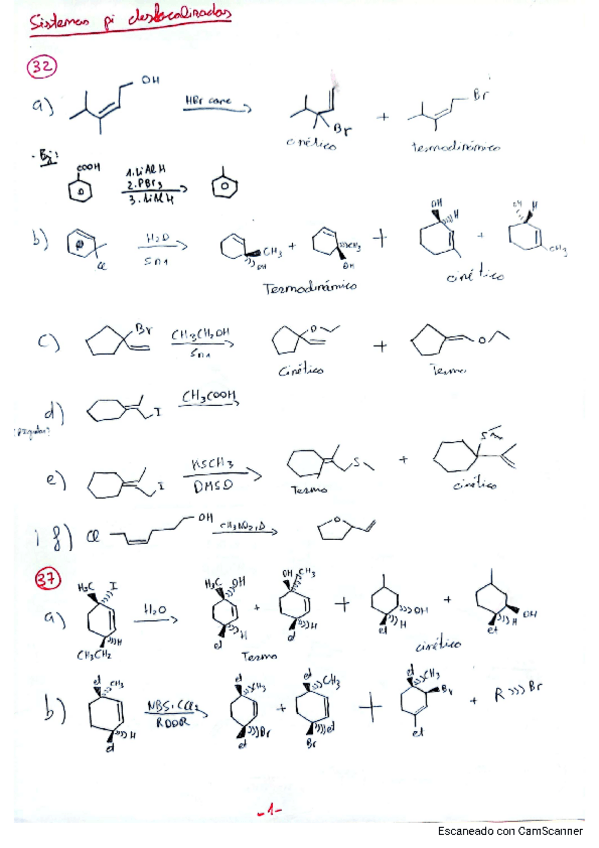 Sistemas pi deslocalizados
32
a) OH HBr conc Br + Br
cinético termodinámico
COOH 1. LiAlH 2. PBr3 3. LiAlH
b) Cl H2O SN1 CH3 OH + CH3 OH + OH H + OH H CH3
Termodinámico cinético
c) Br CH3CH2OH SN1 O + O
Cinético Termo
d) I CH3COOH
e) I HSCH3 DMSO S + S
Termo cinético
f) Cl OH CH3NO2, Δ O
37
a) H3C I H CH3CH2 H2O H3C OH H et + OH CH3 H et + OH H et + OH H et
Termo cinético
b) et CH3 H et NBS, CCl4 ROOR et CH3 Br et + et CH3 et Br + et CH3 Br et + R Br
-1-
Escaneado con CamScanner